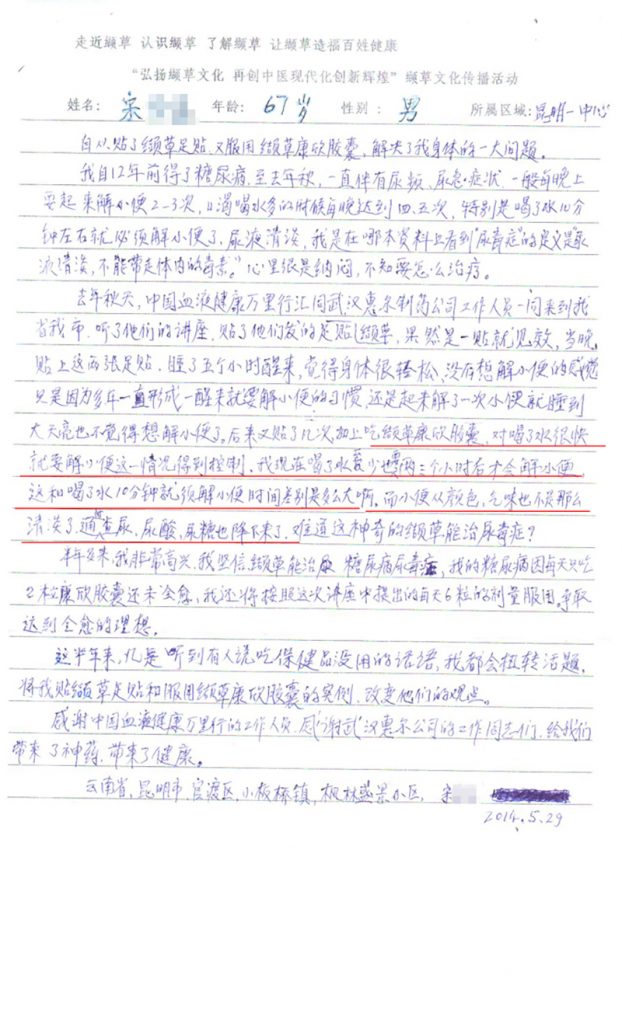 走近缬草 认识缬草 了解缬草 让缬草造福百姓健康
“弘扬缬草文化 再创中医现代化创新辉煌”缬草文化传播活动
姓名: 宋 年龄: 67岁 性别: 男 所属区域: 昆明一中心
自从贴了缬草足贴,又服用缬草康欣胶囊,解决了我身体的一大问题。
我自12年前得了糖尿病,至去年秋,一直伴有尿频、尿急症状,一般每晚上
要起来解小便2-3次,口渴喝水多的时候每晚达到四、五次,特别是喝了水10分
钟左右就必须解小便了,尿液清淡,我是在哪本资料上看到“尿毒症”的定义是“尿
液清淡,不能带走体内的毒素。”心里很是纳闷,不知要怎么治疗。
去年秋天,中国血液健康万里行汇同武汉惠尔制药公司工作人员一同来到我
省我市,听了他们的讲座,贴了他们发的足贴(缬草,果然是一贴就见效,当晚
贴上这两张足贴,睡了五个小时醒来,觉得身体很轻松,没有想解小便的感觉
只是因为多年一直形成一醒来就要解小便的习惯,还是起来解了一次小便就睡到
大天亮也不觉得想解小便了。后来又贴了几次,加上吃缬草康欣胶囊,对喝了水很快
就要解小便这一情况得到控制,我现在喝了水至少也要两三个小时后才会解小便,
这和喝了水10分钟就须解小便时间差别是多么大啊。而小便从颜色,气味也不是那么
清淡了,通查尿,尿酸,尿糖也降下来了,难道这神奇的缬草能治尿毒症?
半年多来,我非常高兴,我坚信缬草能治尿 糖尿病尿毒症,我的糖尿病因每天只吃
2粒康欣胶囊还未全愈,我还将按照这次讲座中提出的每天6粒的剂量服用,争取
达到全愈的理想。
这半年来,凡是听到有人说吃保健品没用的话语,我都会扭转话题,
将我贴缬草足贴和服用缬草康欣胶囊的实例,改变他们的观点。
感谢中国血液健康万里行的工作人员,感谢武汉惠尔公司的工作同志们,给我们
带来了神药,带来了健康。
云南省,昆明市,官渡区,小板桥镇,枫林盛景小区, 宋
2014.5.29